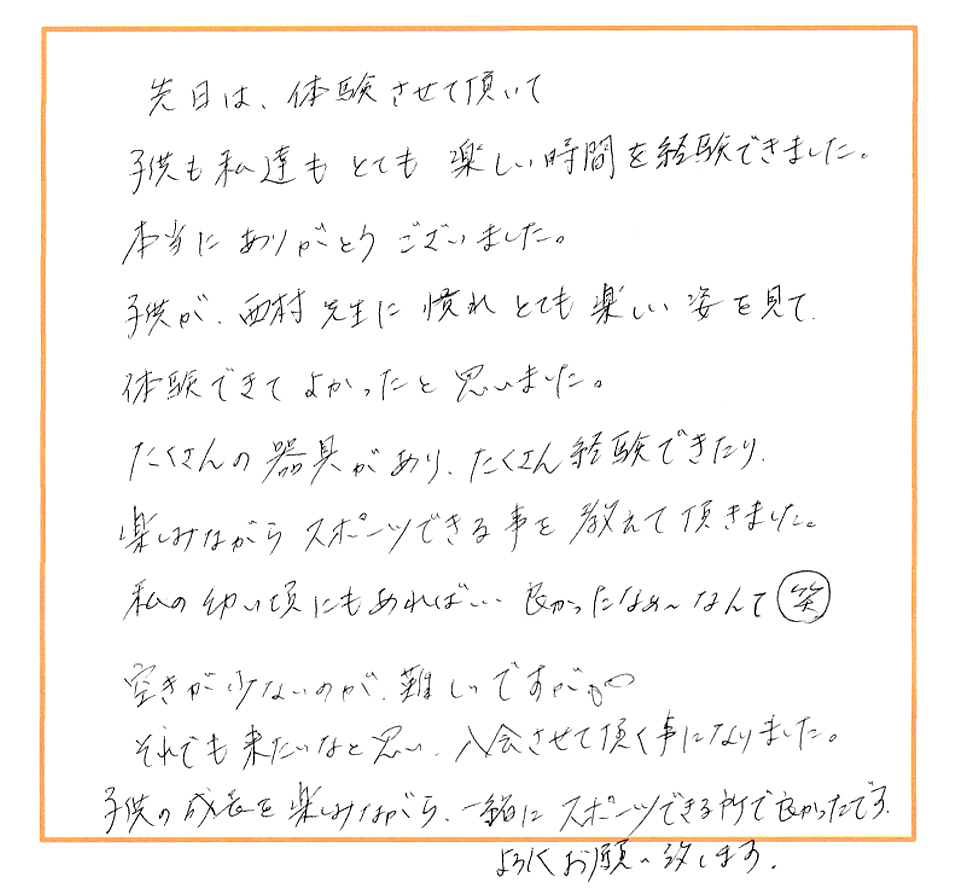 先日は、体験させて頂いて
子供も私達もとても楽しい時間を経験できました。
本当にありがとうございました。
子供が、西村先生に慣れとても楽しい姿を見て、
体験できてよかったと思いました。
たくさんの器具があり、たくさん経験できたり、
楽しみながらスポーツできる事を教えて頂きました。
私の幼い頃にもあれば… 良かったなぁ〜なんて 笑
空きが少ないのが、難しいですが。
それでも来たいなと思い、入会させて頂く事になりました。
子供の成長を楽しみながら、一緒にスポーツできる所で良かったです。
よろしくお願い致します。